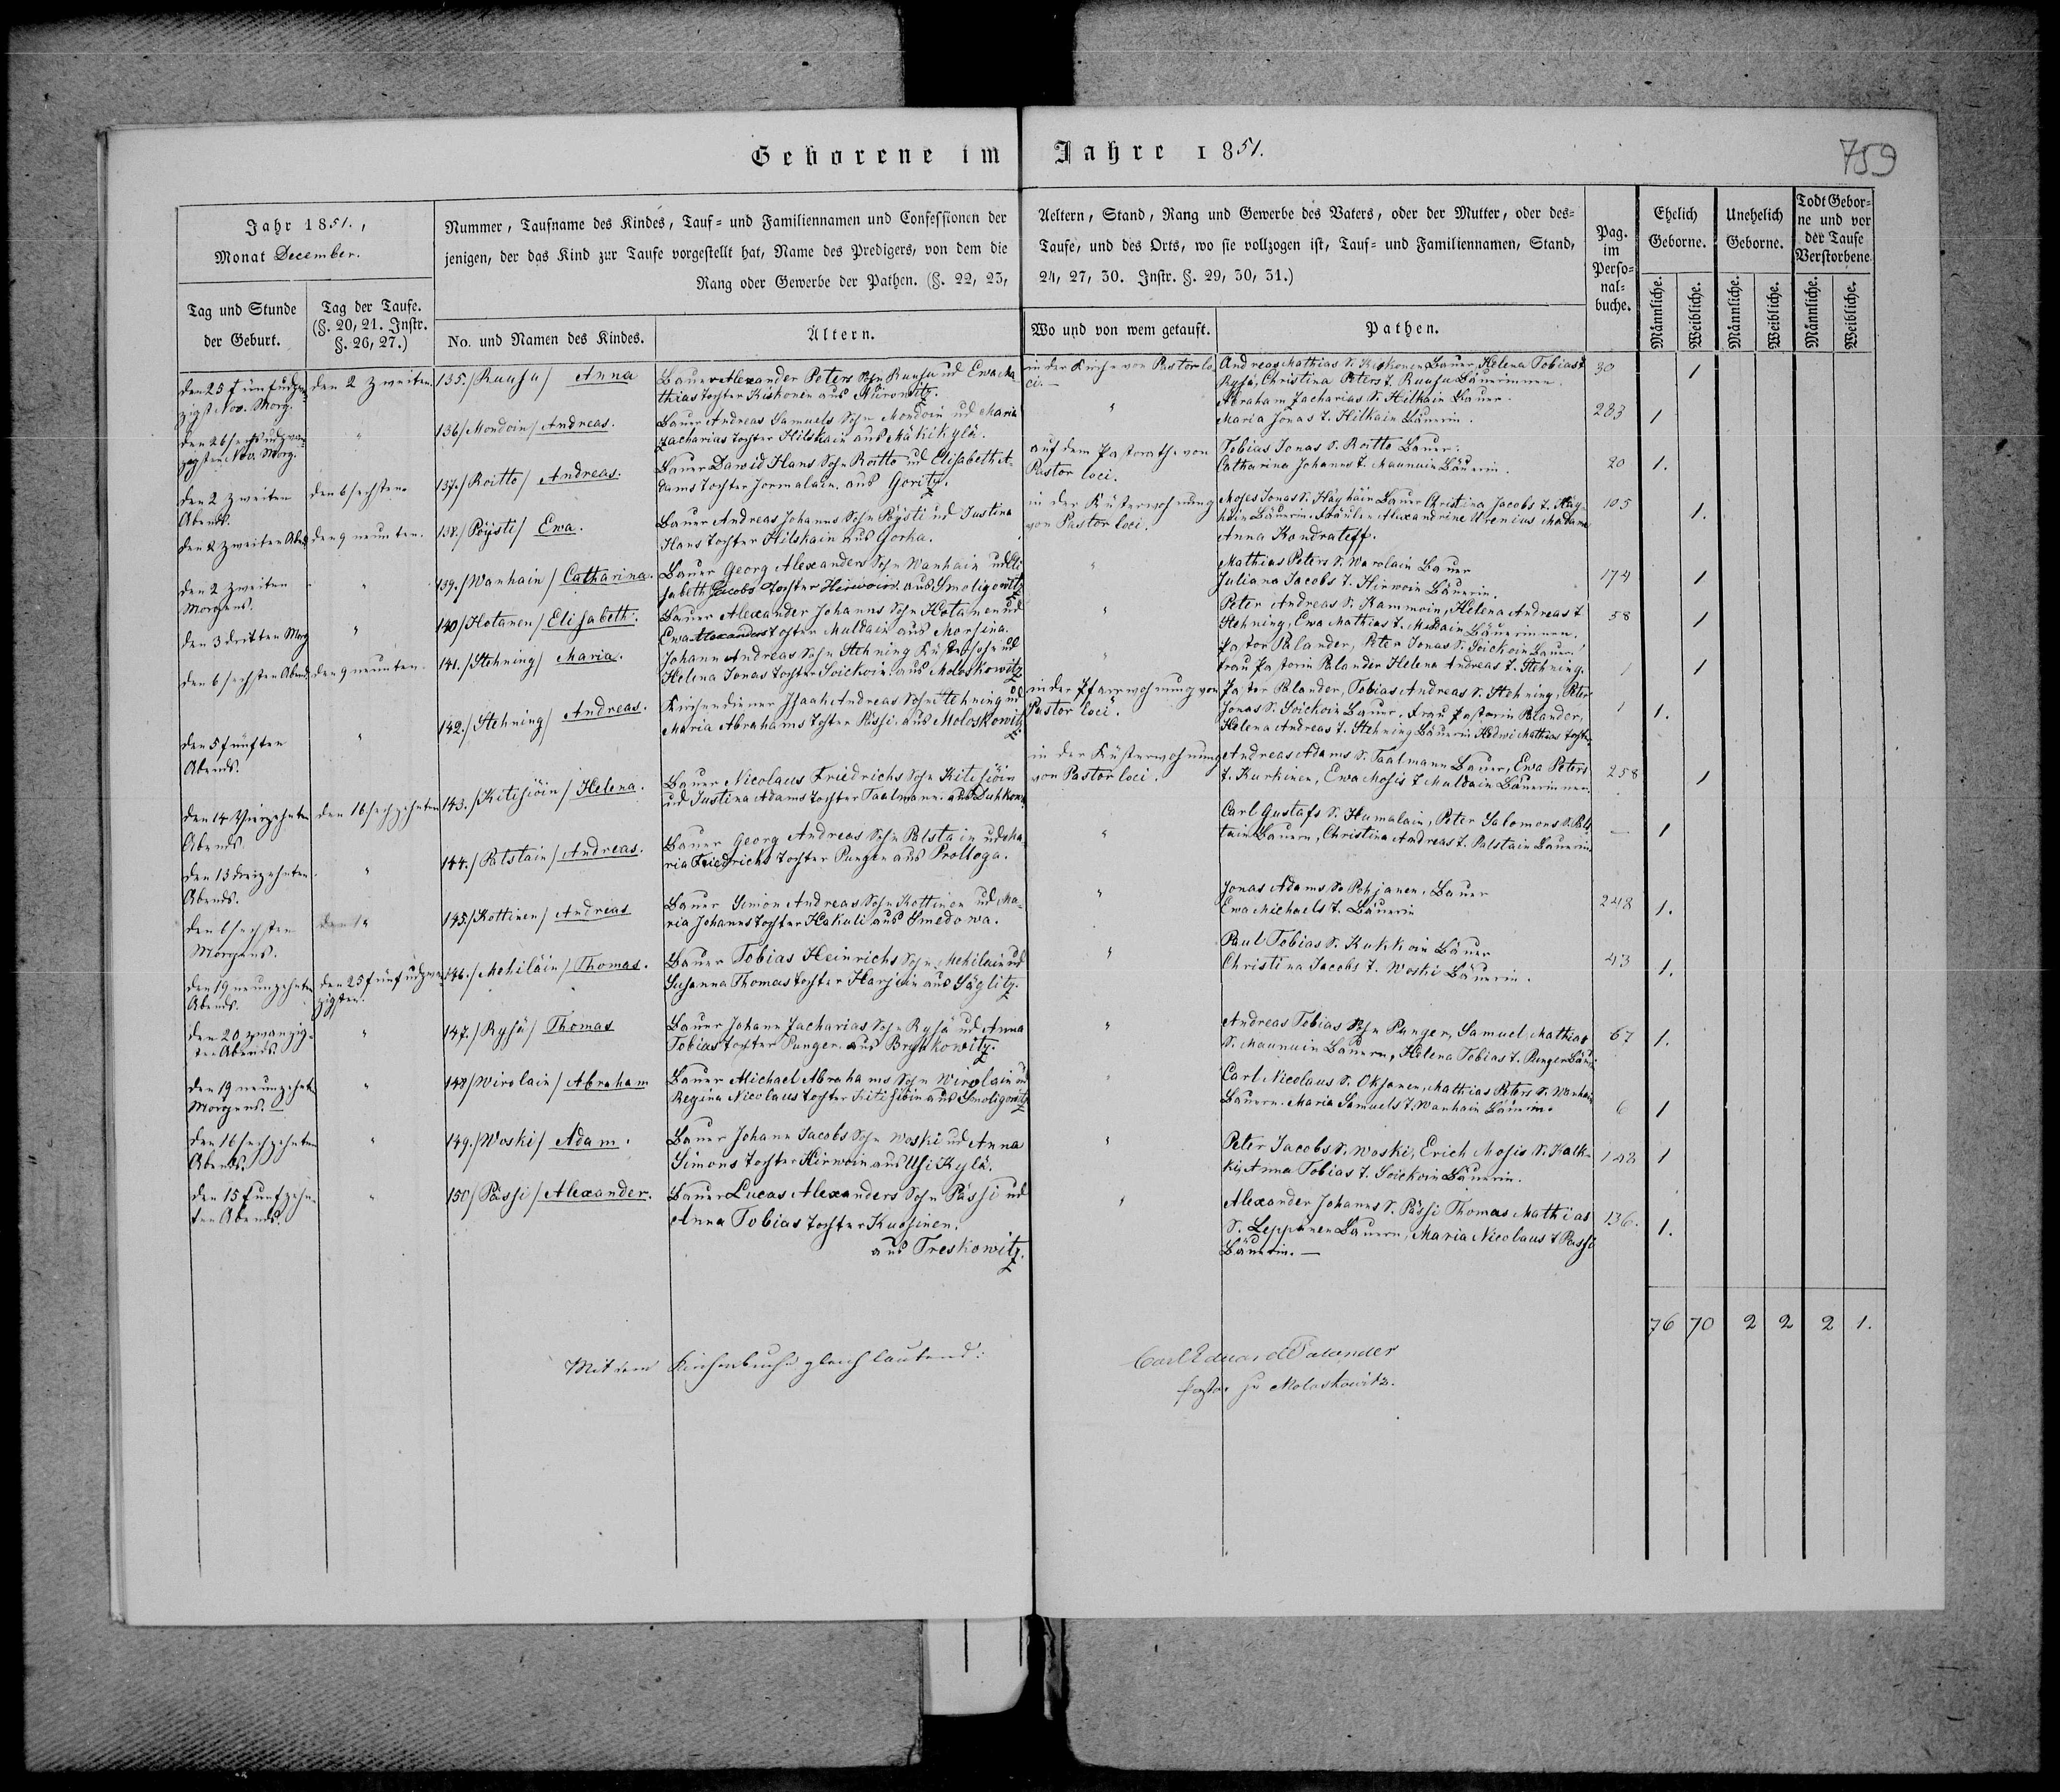 Geborene im Jahre 1851.
759
Jahr 1851.,
Monat December.
Nummer, Taufname des Kindes, Tauf- und Familiennamen und Confessionen der
jenigen, der das Kind zur Taufe vorgestellt hat, Name des Predigers, von dem die
Rang oder Gewerbe der Pathen. (§. 22, 23,
Aeltern, Stand, Rang und Gewerbe des Vaters, oder der Mutter, oder des-
Taufe, und des Orts, wo sie vollzogen ist, Tauf- und Familiennamen, Stand,
24, 27, 30. Instr. §. 29, 30, 31.)
Pag.
im
Perso-
nal-
buche.
Ehelich
Geborne.
Unehelich
Geborne.
Todt Gebor-
ne und vor
der Taufe
Verstorbene
Tag und Stunde
der Geburt.
Tag der Taufe.
(§. 20, 21. Instr.
§. 26, 27.)
No. und Namen des Kindes.
Ältern.
Wo und von wem getauft.
Pathen.
Männliche.
Weibliche.
Männliche.
Weibliche.
Männliche.
Weibliche.
den 25 fünfundzwan
zigst Nov. Morg.
den 2 zweiten.
135./Ruusu/ Anna
Bauer Alexander Peters Sohn Ruusu und Ewa Ma
thias Tochter Kiskonen aus
in der Kirche von Pastor lo
ci.
Andreas Mathias S. Kiskonen Bauer, Helena Tobias t
Rysä, Christina Peters t. Ruusu Bäuerinnen.
30
1
den 26 sechsundzwan
zigsten Nov. Morg.
"
136/Mondoin/ Andreas.
Bauer Andreas Samuels Sohn Mondoin und Maria
Zacharias Tochter Hilskain aus Mäkikylä.
"
Abraham Zacharias S. Hilkain Bauer.
Maria Jonas t. Hilkain Bäuerin.
283
1
den 2 zweiten
Abends.
den 6 sechsten
137./Roitto/ Andreas.
Bauer Dawid Hans Sohn Roitto und Elisabeth A-
dams Tochter Jormalain aus Goritz.
auf dem Pastorathe von
Pastor loci.
Tobias Jonas S. Roitto Bauer.
Catharina Johanns t. Maunuin Bäuerin.
20
1.
den 2 zweiten Abends
den 9 neunten.
138./Pöysti/ Ewa.
Bauer Andreas Johanns Sohn Pöysti und Justina
Hans Tochter Hilskain aus Gorka.
in der Küsterwohnung
von Pastor loci.
Moses Jonas S. Häyhäin Bauer Christina Jacobs t. Häy-
häin Bäuerin. Fräulein Alexandrine Urenius Madame
Anna Kondrateff.
105
1.
den 2 zweiten
Morgens.
"
139./Wanhain/ Catharina.
Bauer Georg Alexanders Sohn Wanhain und Eli
sabeth Jacobs Tochter Hirwoin aus Smoligowitz
"
Mathias Peters S. Warolain Bauer
Juliana Jacobs t. Hirwoin Bäuerin.
174
1
den 3 dritten Morg
"
140/Hotanen/ Elisabeth.
Bauer Alexander Johanns Sohn Hotanen und
Ewa Alexanders Tochter Muldain aus Morsina.
"
Peter Andreas S. Kammoin, Helena Andreas t
Stehning, Ewa Mathias t. Muldain Bäuerinnen.
58
1
den 6 sechsten Abends
den 9 neunten.
141./Stehning/ Maria.
Johann Andreas Sohn Stehning Küster Sohn und
Helena Jonas Tochter Soickoin aus Moloskowitz
"
Pastor Palander, Peter Jonas S. Soickoin Bauer.
Frau Pastorin Palander Helena Andreas t. Stehning.
1
1
den 5 fünften
Abends.
"
142./Stehning/ Andreas.
Kirchendiener Isaak Andreas Sohn Stehning und
Maria Abrahams Tochter Pässi aus Moloskowitz
in der Pfarrwohnung von
Pastor loci.
Pastor Palander, Tobias Andreas S. Stehning, Peter
Jonas S. Soickoin Bauer, Frau Pastorin Palander,
Helena Andreas t. Stehning Bäuerin Hedwi Mathias Tochter
1
1.
den 14 vierzehnten
Abends.
den 16 sechzehnten
143./Kitisiöin/ Helena.
Bauer Nicolaus Friedrichs Sohn Kitisiöin
und Justina Adams Tochter Taalmann aus
in der Küsterwohnung
von Pastor loci.
Andreas Adams S. Taalmann Bauer, Ewa Peters
t. Kurkinen, Ewa Mosis t Muldain Bäuerinnen
258
1
den 13 dreizehnten
Abends.
"
144./Patstain/ Andreas.
Bauer Georg Andreas Sohn Patstain und Ma
ria Friedrichs Tochter Punger aus Prolloga.
"
Carl Gustafs S. Humalain, Peter Salomons S. Pats
tain Bauern, Christina Andreas t. Patstain Bäuerin.
—
1
den 6 sechsten
Morgens.
"
145./Kottinen/ Andreas
Bauer Simon Andreas Sohn Kottinen und Ma-
ria Johanns Tochter Hakuli aus Smedowa.
"
Jonas Adams S. Pohjanen, Bauer
Ewa Michaels t. Bäuerin
248
1.
den 19 neunzehnten
Abends.
den 25 fünfundzwan
zigsten.
146./Mehiläin/ Thomas.
Bauer Tobias Heinrichs Sohn Mehilain und
Susanna Thomas Tochter aus Säglitz.
"
Paul Tobias S. Kukkoin Bauer
Christina Jacobs t. Woski Bäuerin.
43
1.
den 20 zwanzig-
sten Abends.
"
147./Rysä/ Thomas
Bauer Johann Zacharias Sohn Rysä und Anna
Tobias Tochter Punger aus Brynkowitz.
"
Andreas Tobias Sohn Punger, Samuel Mathias
S. Maunuin Bauern, Helena Tobias t. Punger Bäue
67
1.
den 19 neunzehnten
Morgens.
"
148/Wirolain/ Abraham
Bauer Michael Abrahams Sohn Wirolain und
Regina Nicolaus Tochter Kitisiöin aus Smoligowitz
"
Carl Nicolaus S. Oksanen, Mathias Peters S. Wanhain
Bauern. Maria Samuels t. Wanhain Bäuerin.
6
1
den 16 sechzehnten
Abends.
"
149./Woski/ Adam.
Bauer Johann Jacobs Sohn Woski und Anna
Simons Tochter Hirwoin aus Usi Kylä.
"
Peter Jacobs S. Woski, Erich Mosis S. Kalk-
ki, Anna Tobias t. Soickoin Bäuerin.
148
1
den 15 fünfzehn-
ten Abends.
"
150/Pässi/ Alexander.
Bauer Lucas Alexanders Sohn Pässi und
Anna Tobias Tochter Kuosinen.
aus Treskowitz.
"
Alexander Johanns S. Pässi Thomas Mathias
S. Leppänen Bauern, Maria Nicolaus t Pässi
Bäuerin.—
136.
1.
76 70 2 2 2 1.
Mit dem Kirchenbuche gleichlautend:
Carl Eduard Palander
Pastor zu Moloskowitz.